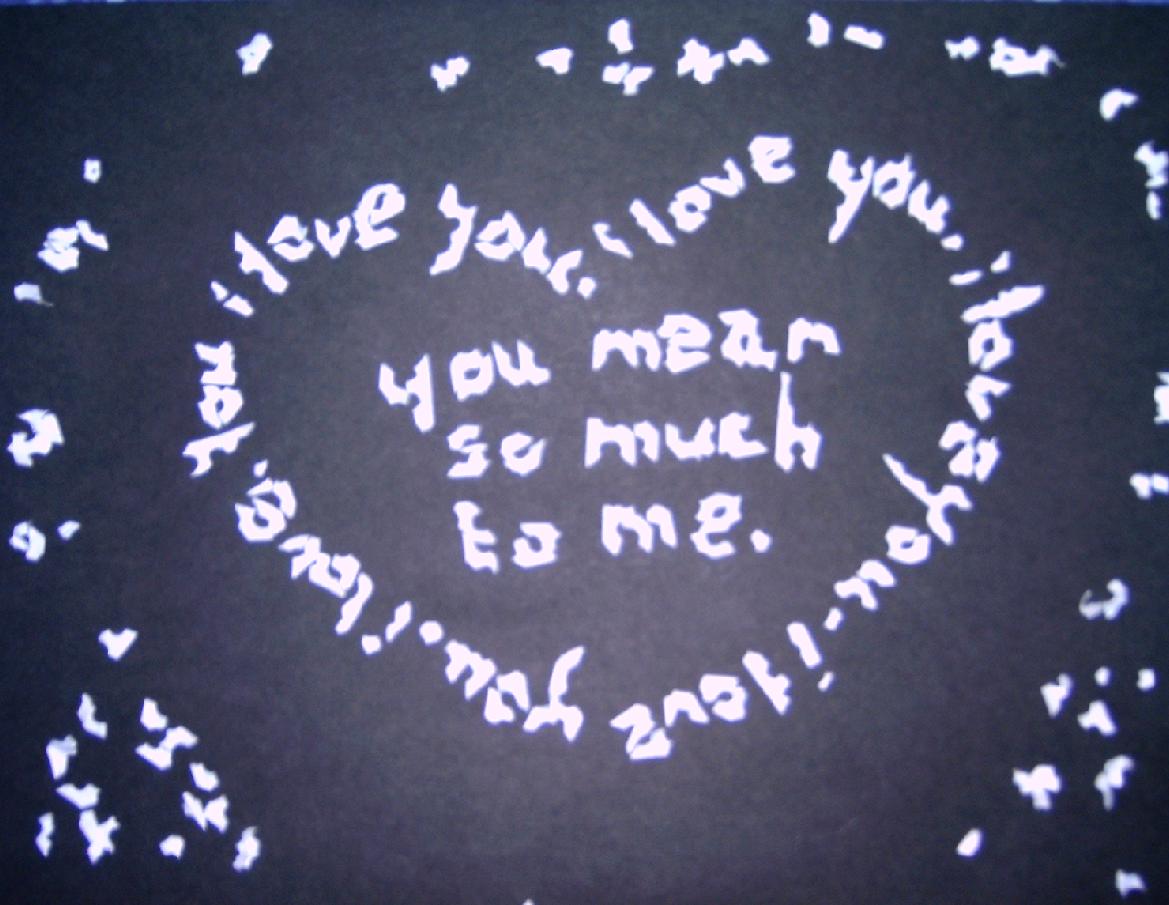 i love you, i love you, i love you. i love you. i love you
you mean
so much
to me.